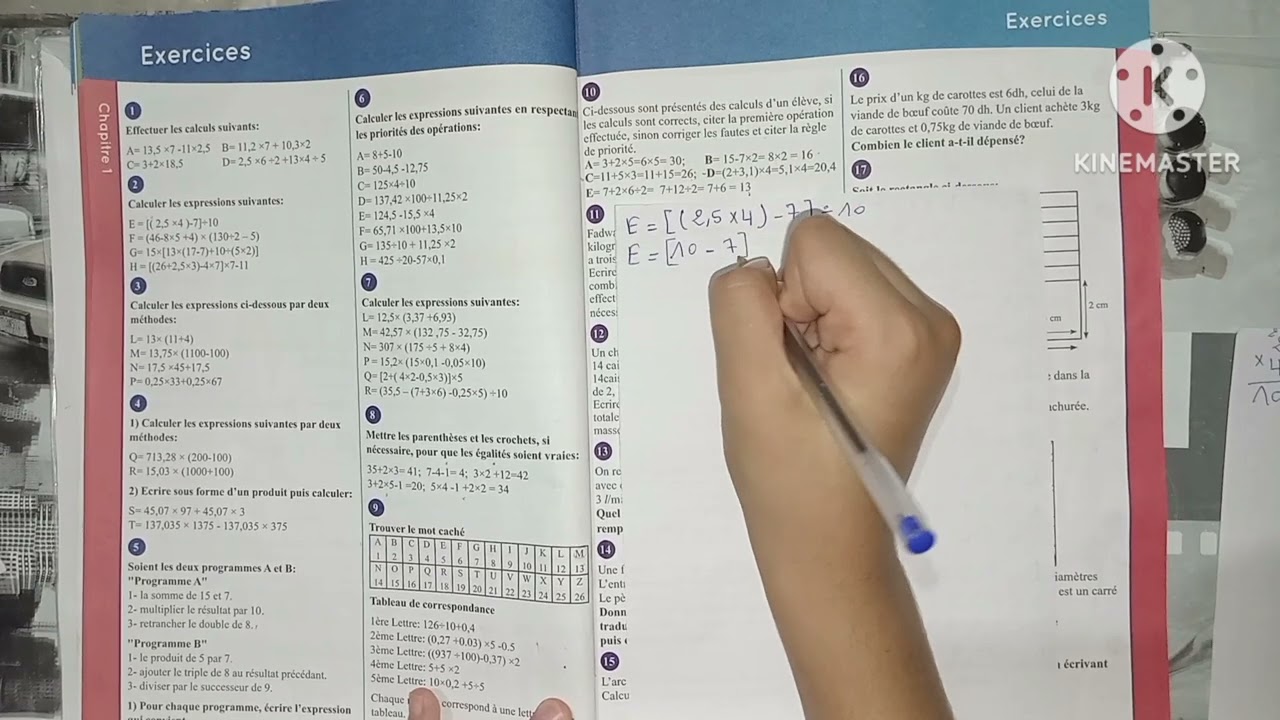 Exercices
Chapitre 1
1
Effectuer les calculs suivants:
A= 13,5 ×7 -11×2,5 B= 11,2 ×7 + 10,3×2
C= 3+2×18,5 D= 2,5 ×6 ÷2 +13×4 ÷ 5
2
Calculer les expressions suivantes:
E = [( 2,5 ×4 )-7]÷10
F = (46-8×5 ÷4) × (130÷2 – 5)
G= 15×[13×(17-7)+10÷(5×2)]
H = [(26+2,5×3)-4×7]×7-11
3
Calculer les expressions ci-dessous par deux
méthodes:
L= 13× (11+4)
M= 13,75× (1100-100)
N= 17,5 ×45+17,5
P= 0,25×33+0,25×67
4
1) Calculer les expressions suivantes par deux
méthodes:
Q= 713,28 × (200-100)
R= 15,03 × (1000+100)
2) Ecrire sous forme d'un produit puis calculer:
S= 45,07 × 97 + 45,07 × 3
T= 137,035 × 1375 - 137,035 × 375
5
Soient les deux programmes A et B:
"Programme A"
1- la somme de 15 et 7.
2- multiplier le résultat par 10.
3- retrancher le double de 8.
"Programme B"
1- le produit de 5 par 7.
2- ajouter le triple de 8 au résultat précédant.
3- diviser par le successeur de 9.
1) Pour chaque programme, écrire l'expression
6
Calculer les expressions suivantes en respectan
les priorités des opérations:
A= 8+5-10
B= 50-4,5 -12,75
C= 125×4÷10
D= 137,42 ×100 ÷11,25×2
E= 124,5 -15,5 ×4
F= 65,71 ×100+13,5×10
G= 135÷10 + 11,25 ×2
H = 425 ÷20-57×0,1
7
Calculer les expressions suivantes:
L= 12,5× (3,37 +6,93)
M= 42,57 × (132 ,75 - 32,75)
N= 307 × (175 ÷5 + 8×4)
P = 15,2× (15×0,1 -0,05×10)
Q= [2+( 4×2-0,5×3)]×5
R= (35,5 – (7+3×6) -0,25×5) ÷10
8
Mettre les parenthèses et les crochets, si
nécessaire, pour que les égalités soient vraies:
35+2×3= 41; 7-4-1= 4; 3×2 +12=42
3+2×5-1 =20; 5×4 -1 +2×2 = 34
9
Trouver le mot caché
A B C D E F G H I J K L M
1 2 3 4 5 6 7 8 9 10 11 12 13
N O P Q R S T U V W X Y Z
14 15 16 17 18 19 20 21 22 23 24 25 26
Tableau de correspondance
1ère Lettre: 126÷10+0,4
2ème Lettre: (0,27 +0.03) ×5 -0.5
3ème Lettre: ((937 ÷100)-0,37) ×2
4ème Lettre: 5+5 ×2
5ème Lettre: 10×0,2 +5÷5
Chaque correspond à une lett
tableau.
Exercices
10
Ci-dessous sont présentés des calculs d'un élève, si
les calculs sont corrects, citer la première opération
effectuée, sinon corriger les fautes et citer la règle
de priorité.
A= 3+2×5=6×5= 30; B= 15-7×2= 8×2 = 16
C=11+5×3=11+15=26; -D=(2+3,1)×4=5,1×4=20,4
E= 7+2×6÷2= 7+12÷2= 7+6 = 13
11
Fadwa
kilogr
a trois
Ecrire
comb
effect
néces
12
Un ch
14 cai
14cai
de 2,
Ecrire
totale
masse
13
On re
avec
3 l/m
Quel
remp
14
Une f
L'ent
Le pè
Donn
tradu
puis
15
L'arc
Calcu
E = [(2,5×4) - 7] ÷ 10
E = [10 - 7]
16
Le prix d'un kg de carottes est 6dh, celui de la
viande de bœuf coûte 70 dh. Un client achète 3kg
de carottes et 0,75kg de viande de bœuf.
Combien le client a-t-il dépensé?
17
2 cm
cm
dans la
achurée.
iamètres
est un carré
écrivant
KINEMASTER
× 4